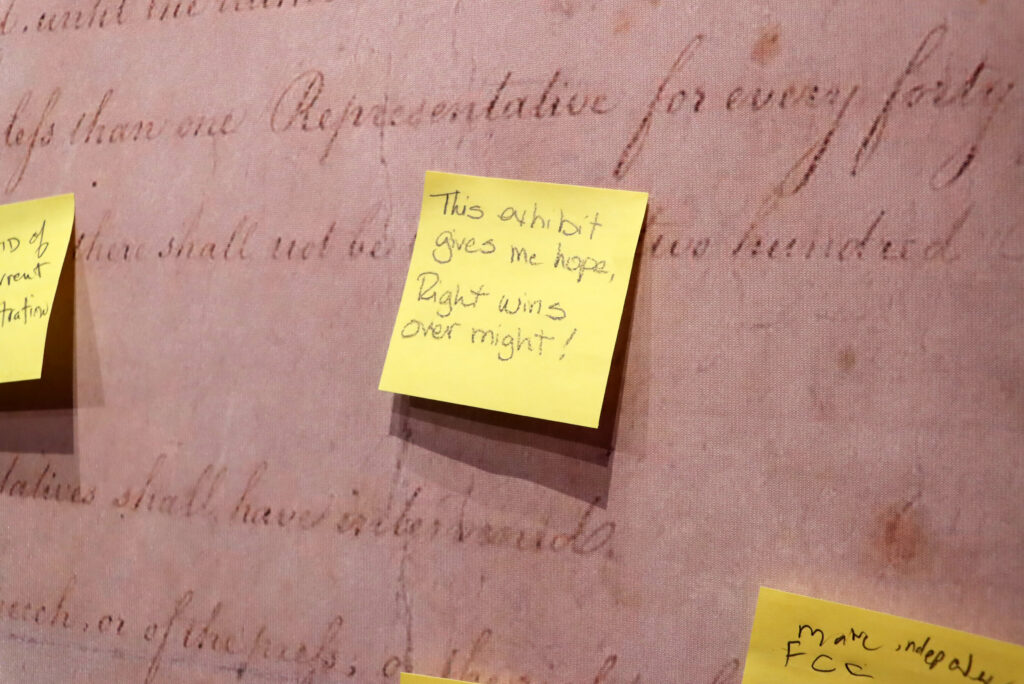 until the
less than one Representative for every forty
there shall not be two hundred
ID of
rrent
tration
This exhibit
gives me hope,
Right wins
over might!
tatives shall have intervened.
eech, or of the press; o
make indepen
FCC